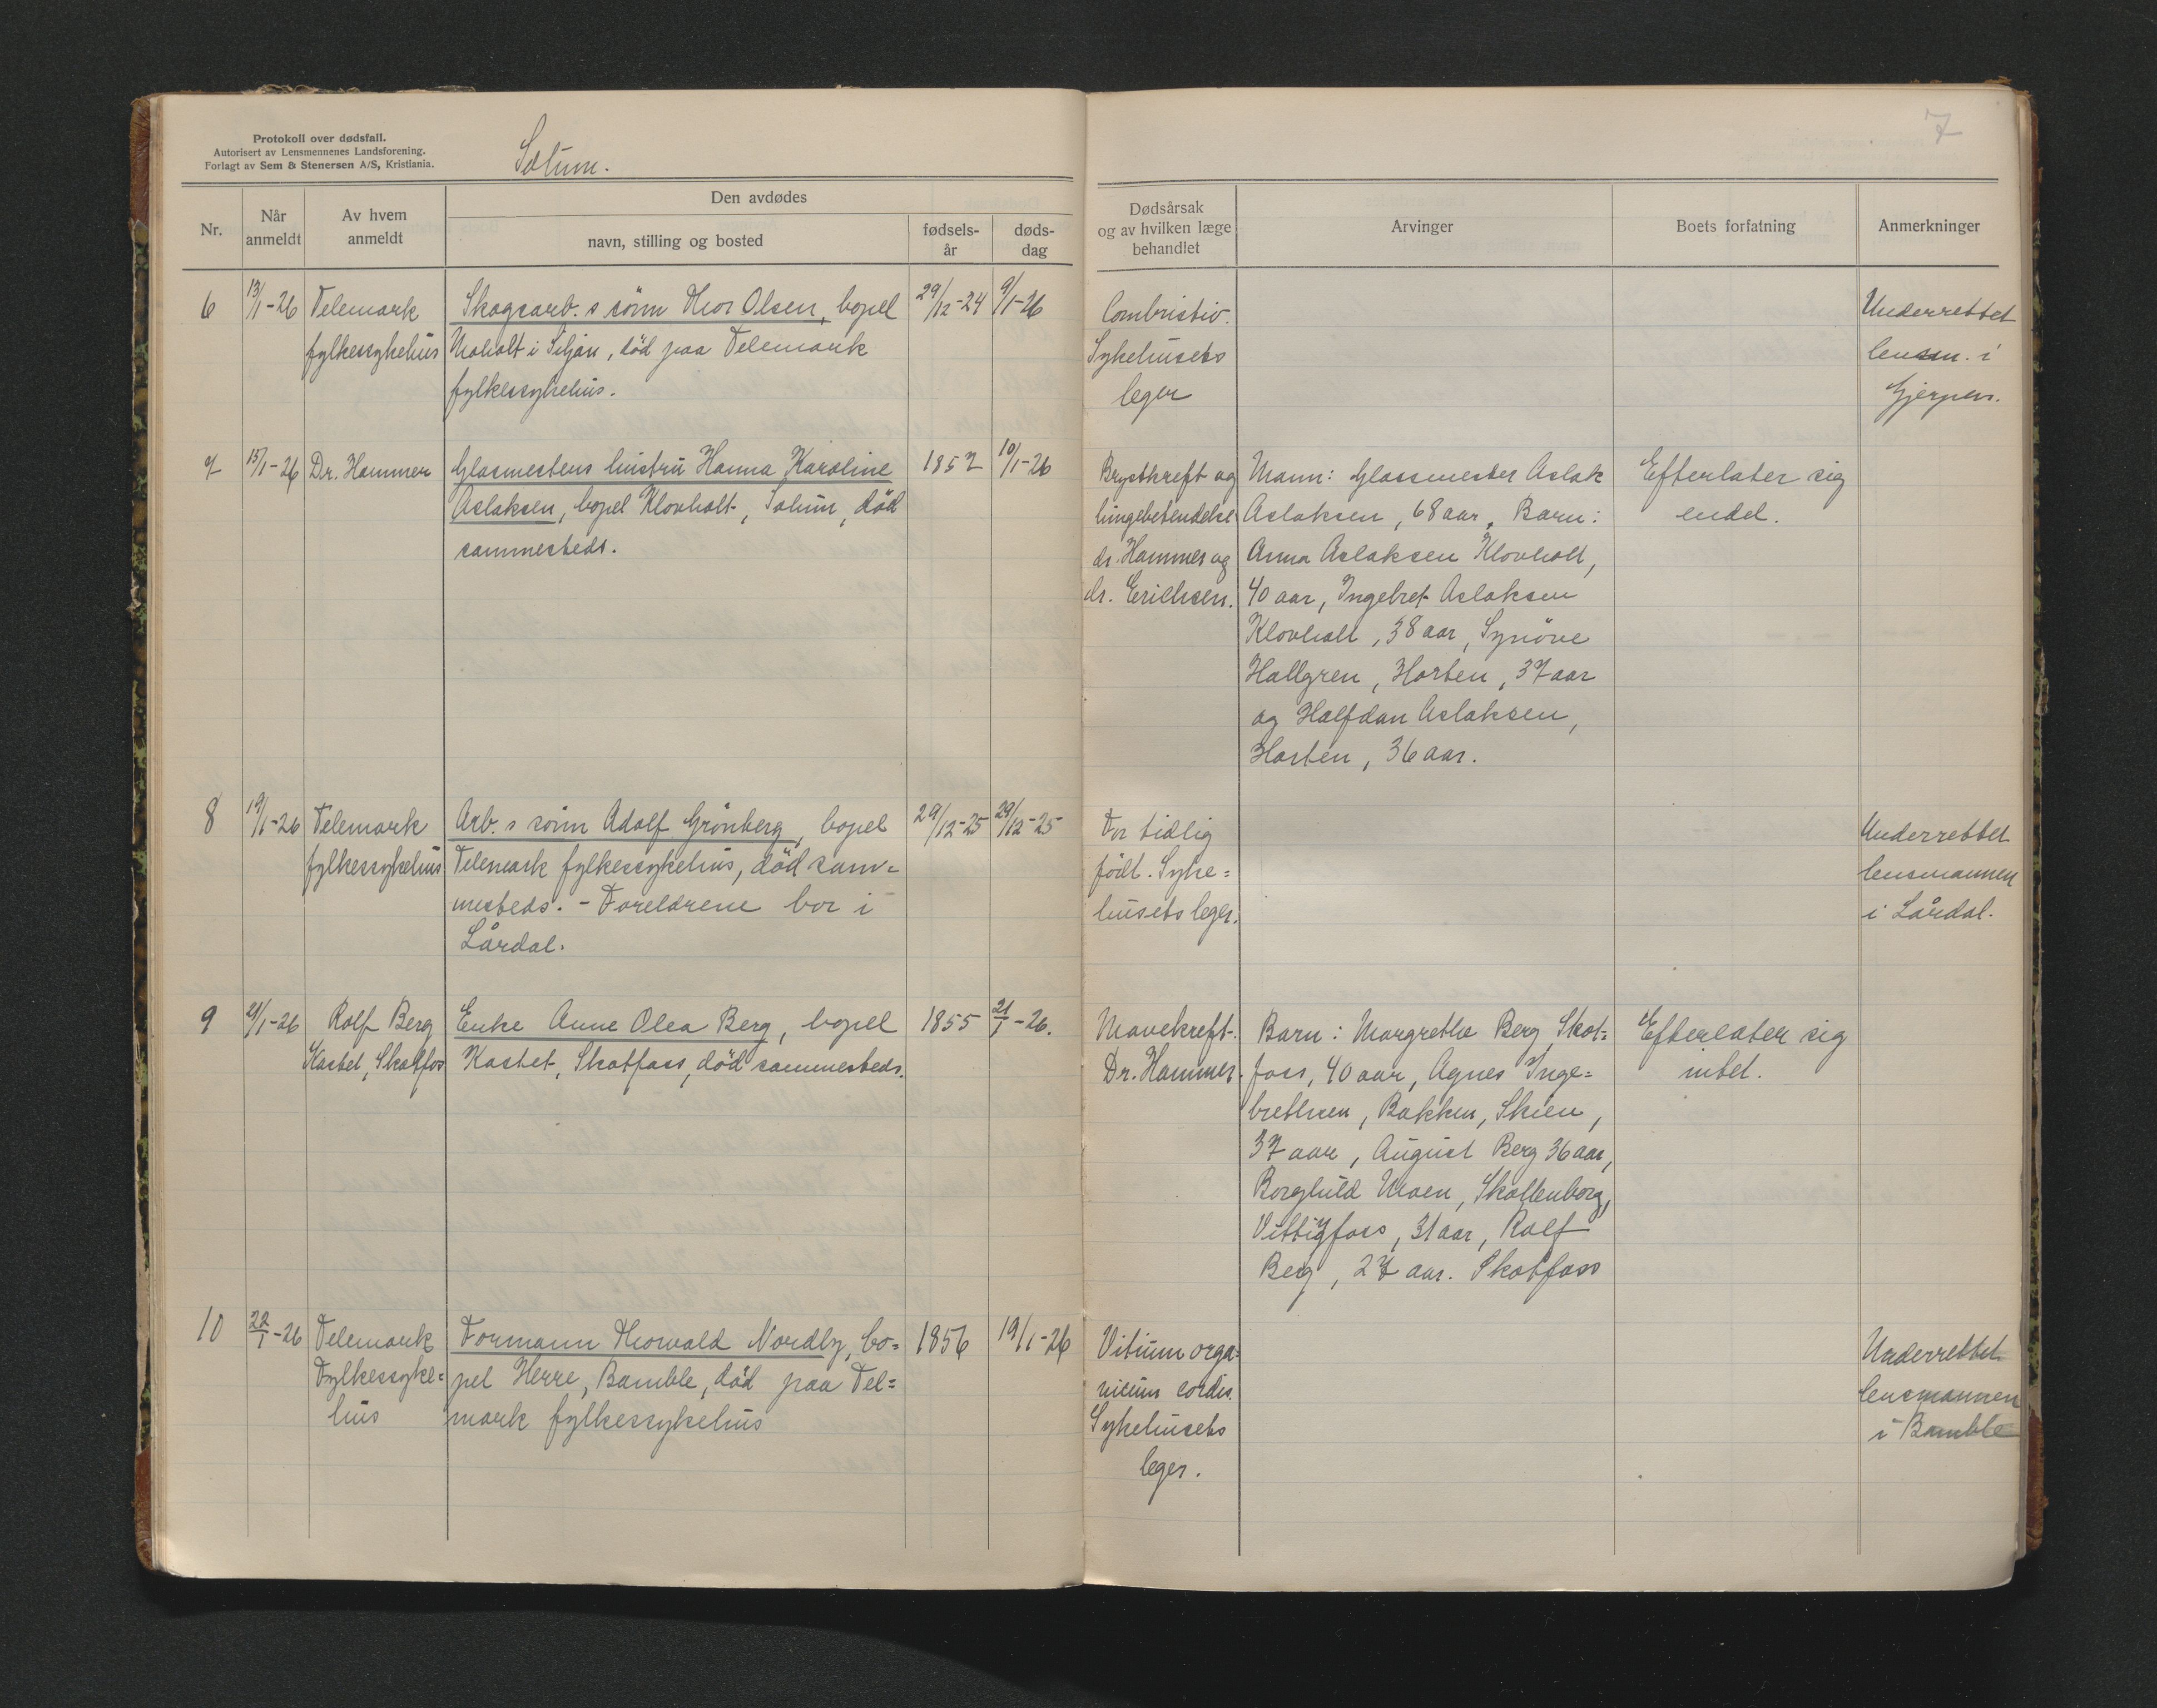 Protokoll over dødsfall.
Autorisert av Lensmennenes Landsforening.
Forlagt av Sem & Stenersen A/S, Kristiania.
Solum.
7
Nr.
Når anmeldt
Av hvem anmeldt
Den avdødes
navn, stilling og bosted
fødsels-år
døds-dag
Dødsårsak
og av hvilken læge
behandlet
Arvinger
Boets forfatning
Anmerkninger
6
13/1-26
Telemark
fylkessykehus
Skogsarb. s sönn Thor Olsen, bopel
Moholt i Siljan, död paa Telemark
fylkessykehus.
29/12-24
9/1-26
Combustio.
Sykehusets
leger
Underrettet
lensm. i
Gjerpen.
7
15/1-26
Dr. Hammer
Glasmesters hustru Hanna Karoline
Aslaksen, bopel Klovholt, Solum, död
sammesteds.
1857
10/1-26
Brystkreft og
lungebetendelse
dr. Hammer og
dr. Erichsen.
Mann: Glassmester Aslak
Aslaksen, 68 aar. Barn:
Anna Aslaksen Klovholt,
40 aar, Ingebret Aslaksen
Klovholt, 38 aar, Synöve
Hallgren, Horten, 37 aar
og Halfdan Aslaksen,
Horten, 36 aar.
Efterlater sig
endel.
8
19/1-26
Telemark
fylkessykehus
Arb. s sönn Adolf Grönberg, bopel
Telemark fylkessykehus, död sam=
mesteds. - Foreldrene bor i
Lårdal.
29/12-25
29/12-25
For tidlig
födt. Syke=
husets leger.
Underrettet
lensmannen
i Lårdal.
9
21/1-26
Rolf Berg
Kastet, Skotfos
Enke Anne Olea Berg, bopel
Kastet, Skotfoss, död sammesteds.
1855
21/1-26.
Mavekreft.
Dr. Hammer.
Barn: Margrethe Berg Skot=
foss, 40 aar, Agnes Inge=
brethsen, Bakken, Skien,
37 aar, August Berg 36 aar,
Borghild Moen, Skollenborg,
Vittigfoss, 31 aar, Rolf
Berg, 27 aar. Skotfoss
Efterlater sig
intet.
10
22/1-26
Telemark
Fylkessyke=
hus
Formann Thorvald Nordby, bo=
pel Herre, Bamble, död paa Tel=
mark fylkessykehus
1856
19/1-26
Vitium orga=
nicum cordis.
Sykehusets
leger.
Underrettet
lensmannen
i Bamble